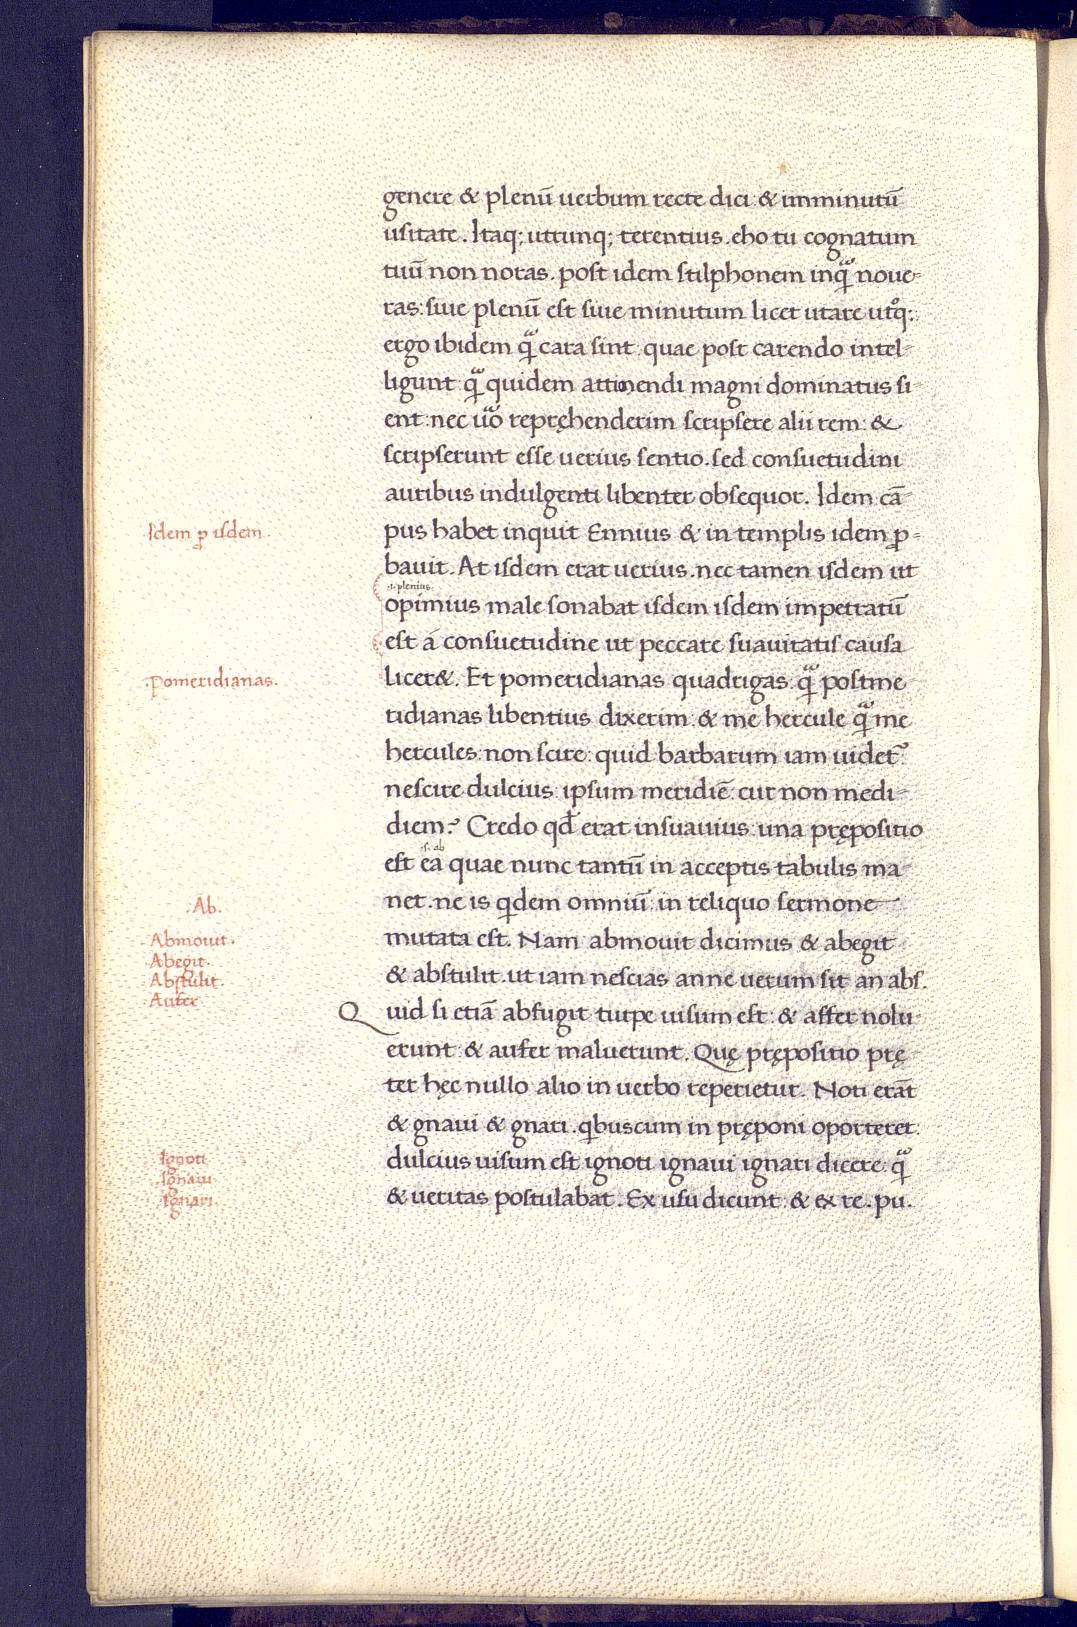 genere & plenū uerbum recte dici & imminutū
usitate. Itaq; utrunq; terentius. eho tu cognatum
tuū non noras. post idem stilphonem inq̄ noue-
ras: siue plenū est siue minutum licet utare utrq;
ergo ibidem q̄ cara sint quae post carendo intel-
ligunt q̄ quidem attinendi magni dominatus si-
ent: nec uo repręhenderim scripsere alii rem: &
scripserunt esse uerius sentio. sed consuetudini
auribus indulgenti libenter obsequor. Idem cā-
Idem ꝓ isdem.
pus habet inquit Ennius & in templis idem ꝓ-
bauit. At isdem erat uerius. nec tamen isdem ut
.i. plenius.
opimius male sonabat isdem isdem impetratū
est á consuetudine ut peccare suauitatis causa
.pomeridianas.
licer&. Et pomeridianas quadrigas: q̄ postme-
ridianas libentius dixerim: & me hercule q̄ me
hercules: non scire: quid barbarum iam uidet᷑
nescire dulcius: ipsum meridiē cur non medi-
diem? Credo qd̄ erat insuauius: una prępositio
.s. ab
est ea quae nunc tantū in acceptis tabulis ma-
.Ab.
net. ne is qdem omniū: in reliquo sermone
Abmouit.
mutata est. Nam abmouit dicimus & abegit
Abegit.
Abstulit.
& abstulit. ut iam nescias anne uerum sit an abs.
Aufer
Quid si etiā abfugit turpe uisum est: & affer nolu-
erunt: & aufer maluerunt. Quę prępositio prę-
ter hęc nullo alio in uerbo reperietur. Noti erāt
& gnaui & gnari. qbuscum in pręponi oporteret.
Ignoti
dulcius uisum est ignoti ignaui ignari dicere: q̄
Ignaui
Ignari
& ueritas postulabat. Ex usu dicunt: & ex re. pu.